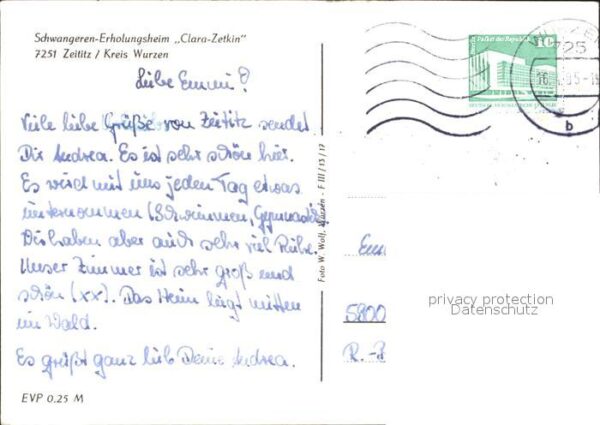 Schwangeren-Erholungsheim „Clara-Zetkin"
7251 Zeititz / Kreis Wurzen
Liebe Emmi!
Viele liebe Grüße von Zeititz sendet
Dir Andrea. Es ist sehr schön hier.
Es wird mit uns jeden Tag etwas
unternommen (Schwimmen, Gymnastik)
Wir haben aber auch sehr viel Ruhe.
Unser Zimmer ist sehr groß und
schön (xx). Das Heim liegt mitten
im Wald.
Es grüßt ganz lieb Deine Andrea.
EVP 0.25 M
Foto W. Wolf, - F III/15/17
Palast der Republik
10
725
b
Em
5800
R.-
privacy protection
Datenschutz